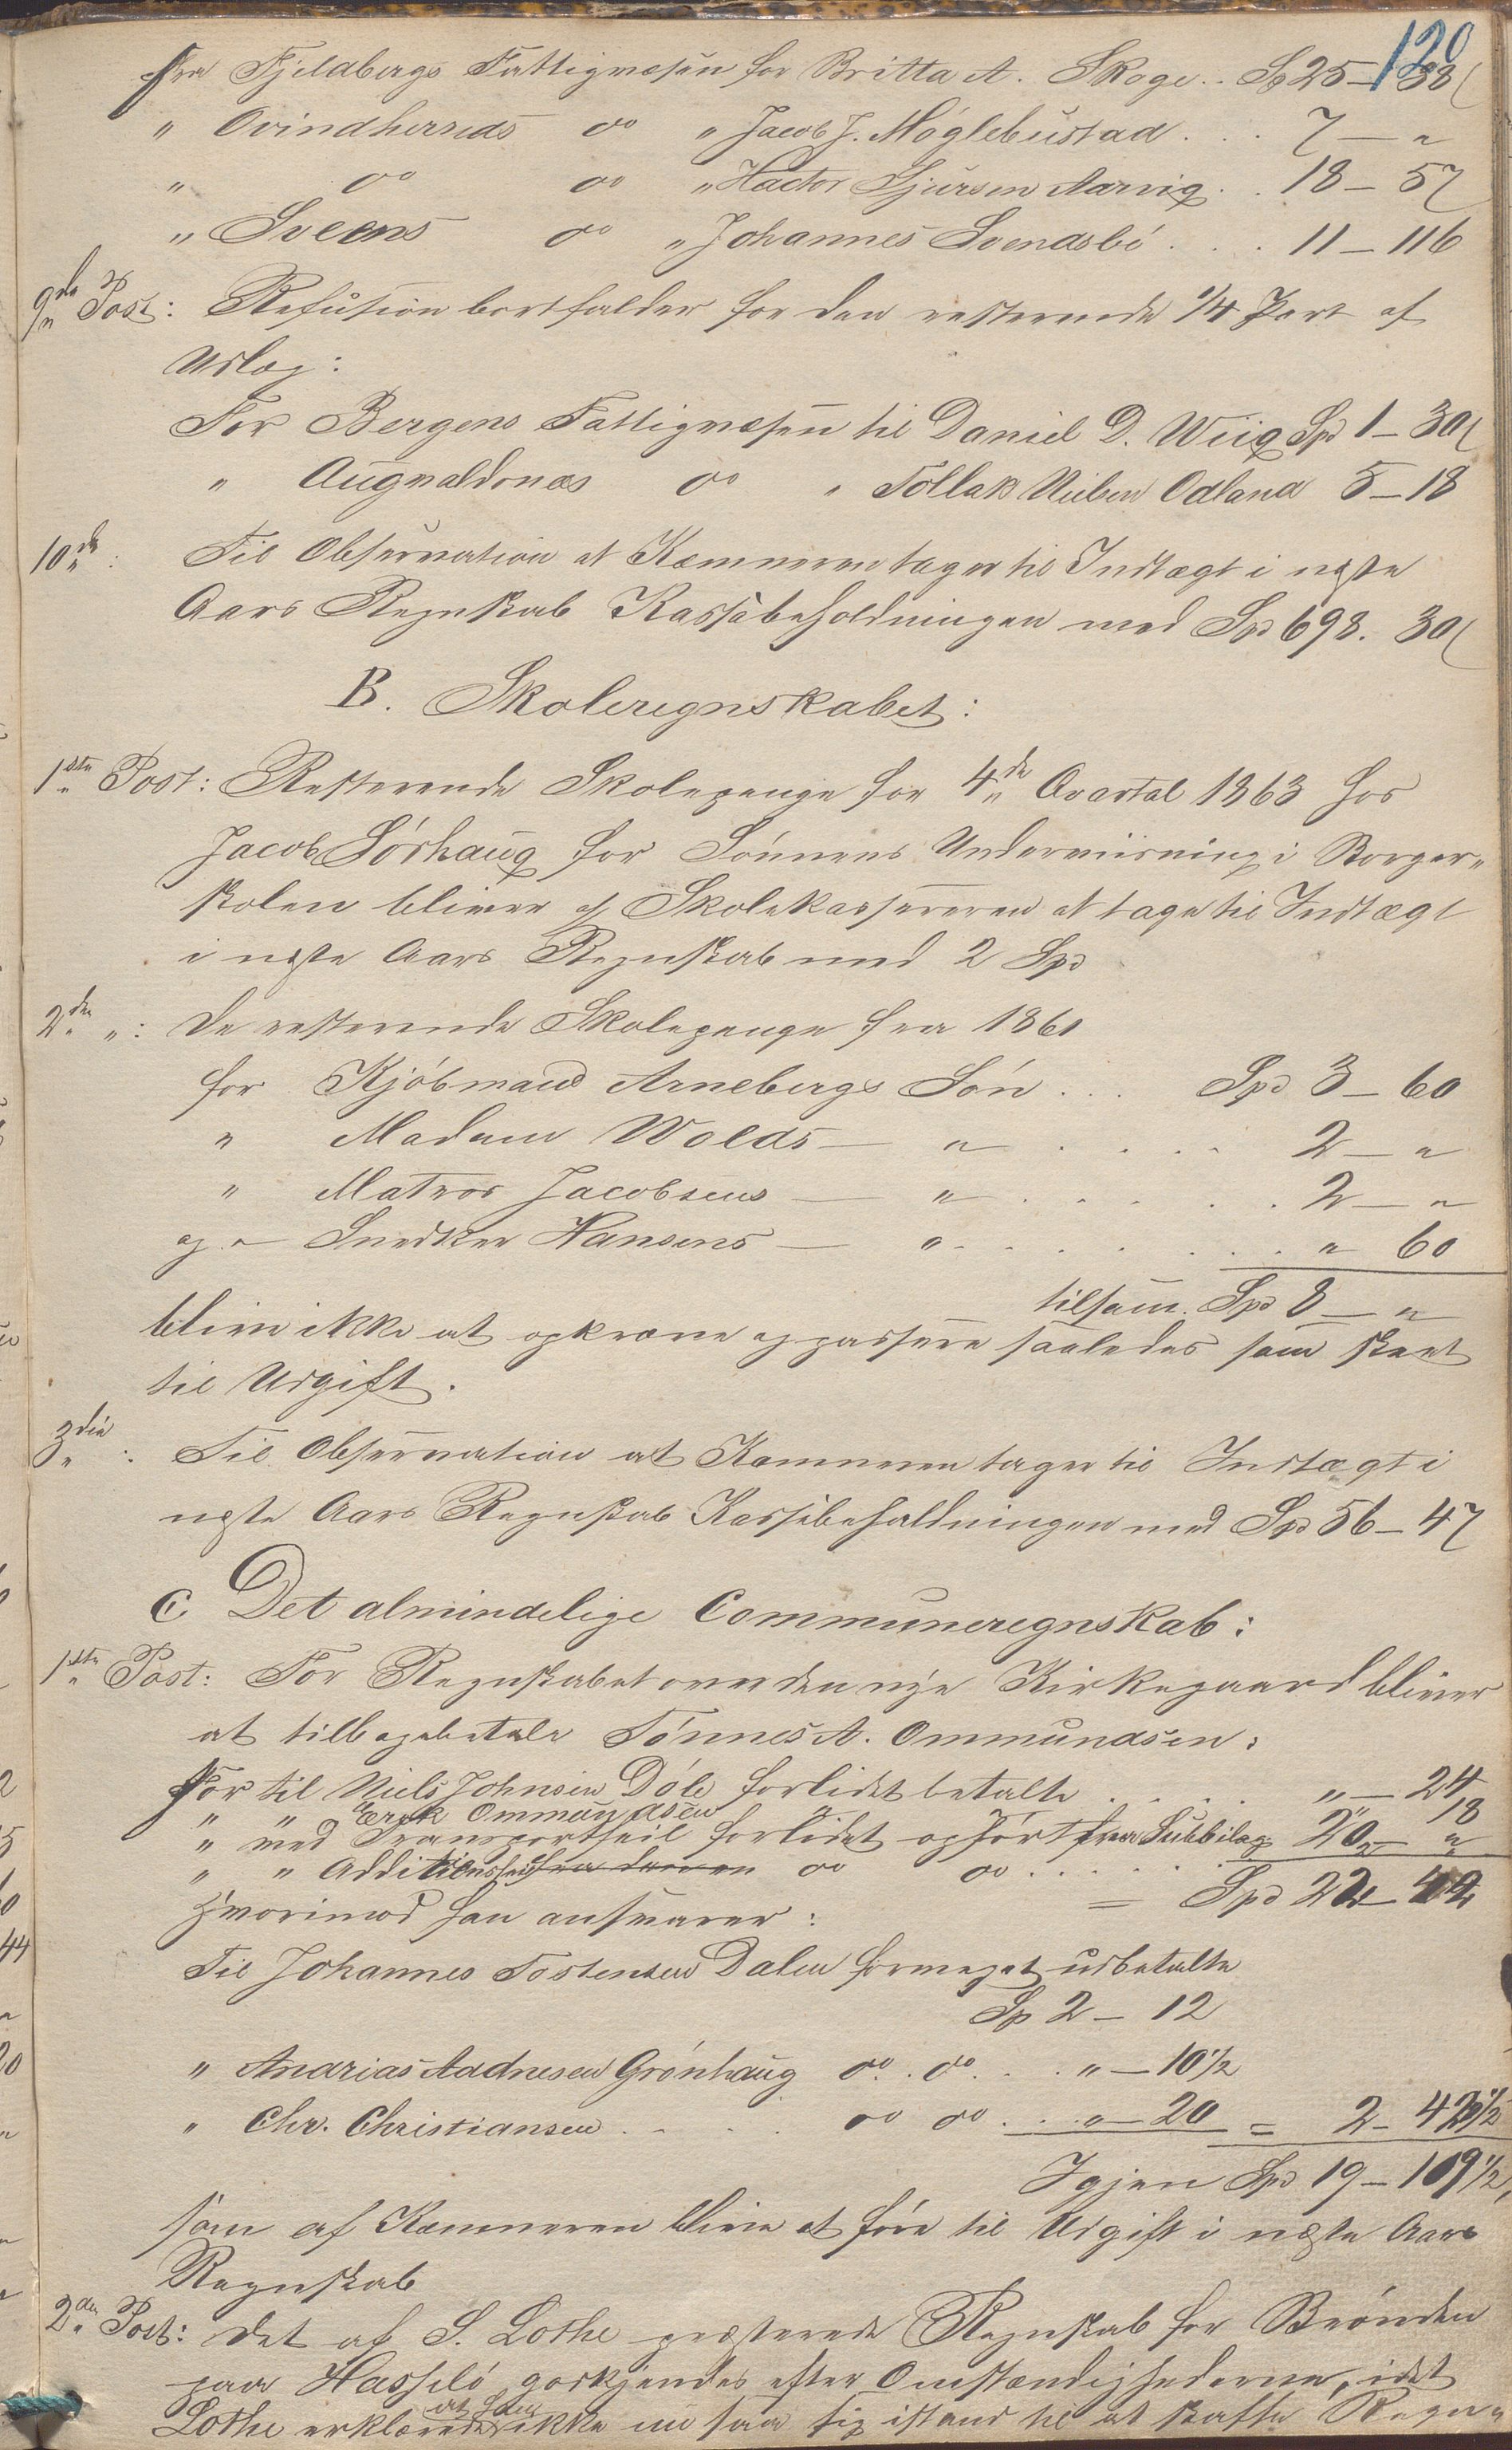 120
fra Fjeldbergs Fattigvæsen for Britta A. Skoge .. Sp 25 – 38
" Qvindherreds do " Jacob J. Møglebustad . . . 7 – "
" do do " Hactor Sjursen Aarvig . . 18 – 57
" Sveens do " Johannes Svendsbö . . . 11 – 116
9de Post: Refusion bortfalder for den resterende 1/4 Part af
Udlæg:
For Bergens Fattigvæsen til Daniel D. Wiig Spd 1 – 30
" Augvaldsnæs do " Tollak Nielsen Odland 5 – 18
10de : Til Observation at Kæmneren tager til Indtægt i næste
Aars Regnskab Kassebeholdningen med Spd 698. 30
B. Skoleregnskabet:
1ste Post: Resterende Skolepenge for 4de Qvartal 1863 hos
Jacob Sörhaug for Sönnens Underviisning i Borger-
skolen bliver af Skolekassereren at tage til Indtægt
i næste Aars Regnskab med 2 Spd
2den " : De resterende Skolepenge fra 1861
for Kjöbmand Arnebergs Sön . . . Spd 3 – 60
" Madam Wolds – " . . . . 2 – "
" Matros Jacobsens – " . . . . . 2 – "
og " Snedker Hansens – " . . . . . . " 60
tilsam. Spd 8 – "
blive ikke at opkræve og passere saaledes som skeet
til Udgift.
3die : Til Observation at Kæmneren tager til Indtægt i
næste Aars Regnskab Kassebeholdningen med Spd 56 – 47
C Det almindelige Communeregnskab:
1ste Post: For Regnskabet over den nye Kirkegaard bliver
at tilbagebetale Tönnes A. Ommundsen:
For til Niels Johnsen Döle forlidet betalte . . . . " – 24
" " Erik Ommundsen " " 18
" med Transportfeil forlidet opfört fra Subbilag 20 – "
" " Additionsfeil do do . . . . . 2 "
= Spd 22 – 42
Hvorimod han ansvarer:
Til Johannes Tostensen Dalen formeget udbetalte
Sp 2 – 12
" Andrias Aadnesen Grönhaug do . do . . . " – 10 1/2
" Chr. Christiansen . . . . do do . . . " – 20 = 2 – 42 1/2
Igjen Spd 19 – 119 1/2,
som af Kæmneren blive at före til Udgift i næste Aars
Regnskab
2den Post: Det af S. Lothe præsterede Regnskab for Brönden
paa Hasselö godkjendes efter Omstændighederne, idet
Lothe erklærede at han ikke nu saa sig istand til at skaffe Regn-